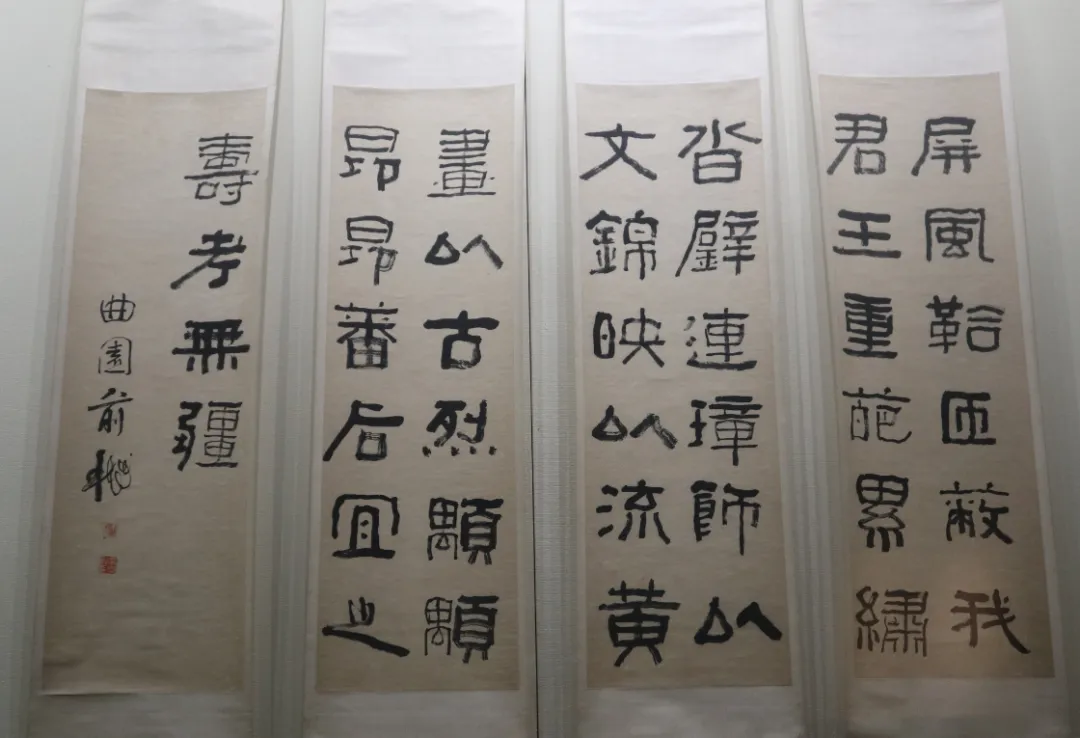 屏風鞈匝蔽我
君王重葩累繡
沓璧連璋飾以
文錦映以流黃
畫以古烈顒顒
昂昂蕃后宜之
壽考無疆
曲園俞樾